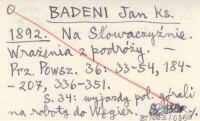 BADENI Jan Ks.
1892. Na Słowaczyźnie.
Wrażenia z podróży. —
Prz. Powsz. 36: 33-54, 184-
-207, 336-351.
S. 34: wyjazdy pol. górali
na roboty do Węgier.